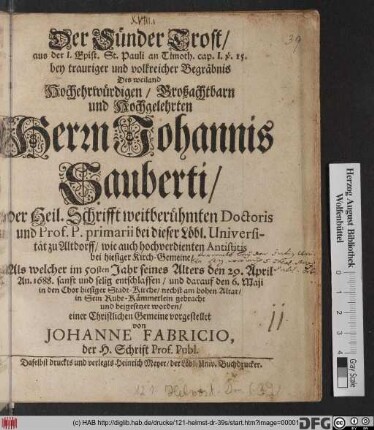 XVIII.
Der Sünder Trost /
aus der I. Epist. St. Pauli an Timoth. cap. I. v. 15.
bey trauriger und volkreicher Begräbnis
Des weiland
Hochehrwürdigen / Großachtbarn
und Hochgelehrten
Herrn Johannis
Sauberti /
der Heil. Schrifft weitberühmten Doctoris
und Prof. P. primarii bei dieser Löbl. Universi-
tät zu Altdorff / wie auch hochverdienten Antistitis
bei hiesiger Kirch-Gemein /
Als welcher im 50sten Jahr seines Alters den 29. April
An. 1688. sanft und selig entschlaffen / und darauf den 6. Maji
in den Chor hiesiger Stadt-Kirche / nechst am hohen Altar /
in Sein Ruhe-Kämmerlein gebracht
und beygesetzet worden /
einer Christlichen Gemeine vorgestellet
von
JOHANNE FABRICIO,
der H. Schrift Prof. Publ.
Daselbst druckts und verlegts Heinrich Meyer / der Löbl. Univ. Buchdrucker.
11.
Herzog August Bibliothek
Wolfenbüttel
Gray Scale
(c) HAB http://diglib.hab.de/drucke/121-helmst-dr-39s/start.htm?image=00001
DFG